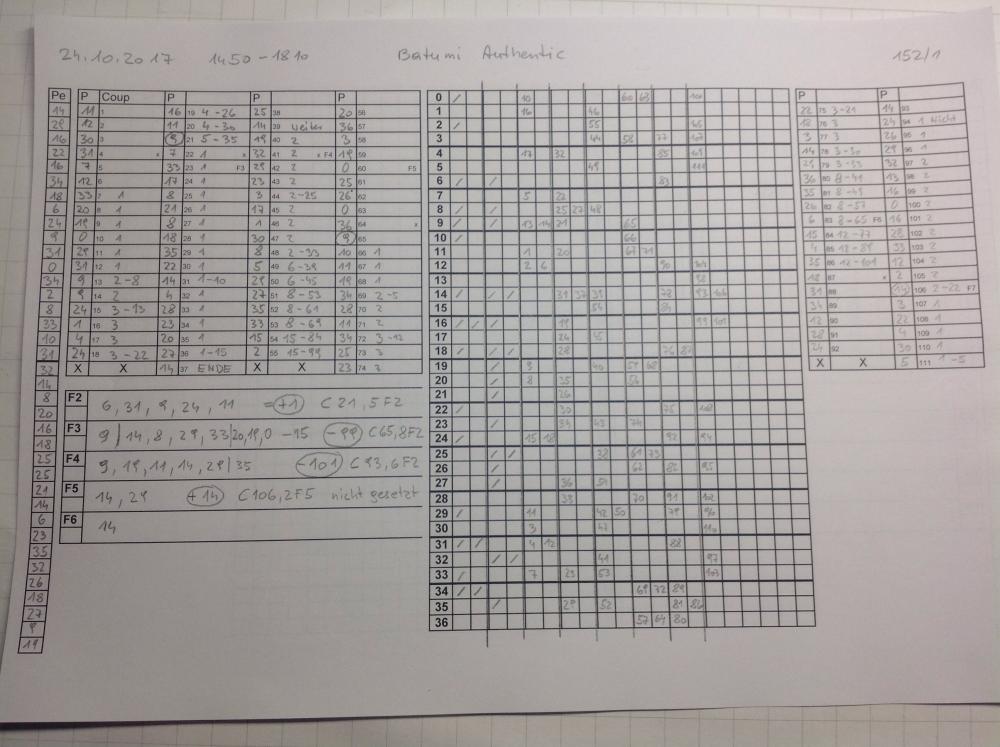 24.10.2017 1450-1810 Batumi Authentic 152/1
Pe P Coup P P P
14 11 1 16 19 4-26 25 38 20 56
29 12 2 11 20 4-30 14 39 weiter 36 57
16 30 3 9 21 5-35 19 40 2 3 58
22 31 4 x 7 22 1 x 32 41 2 x F4 19 59
16 7 5 33 23 1 F3 29 42 2 0 60 F5
34 12 6 17 24 1 23 43 2 25 61
18 33 7 1 8 25 1 3 44 2-25 26 62
6 20 8 1 21 26 1 17 45 2 0 63
24 19 9 1 8 27 1 1 46 2 36 64 x
9 0 10 1 18 28 1 30 47 2 9 65
31 29 11 1 35 29 1 8 48 2-33 10 66 1
0 31 12 1 22 30 1 5 49 6-39 11 67 1
34 9 13 2-8 14 31 1-10 29 50 6-45 19 68 1
2 9 14 2 4 32 1 27 51 8-53 34 69 2-5
8 24 15 3-13 28 33 1 35 52 8-61 28 70 2
33 1 16 3 23 34 1 33 53 8-69 11 71 2
10 4 17 3 20 35 1 15 54 15-84 34 72 3-12
31 24 18 3-22 27 36 1-15 2 55 15-99 25 73 3
32 X X 14 37 ENDE X X 23 74 3
8
14
20
23
18
25
25
21
14
6
23
35
32
26
18
27
9
19
F2 6, 31, 9, 24, 11 = +1 C21, 5F2
F3 9 | 14, 8, 29, 33 | 20, 19, 0 -15 -99 C65, 8F2
F4 9, 19, 11, 14, 29 | 35 -101 C93, 6F2
F5 14, 29 +14 C106, 2F5 nicht gesetzt
F6 14
0 / 10 60 63 100
1 16 46
2 / 55 105
3 44 58 77 107
4 17 32 85 109
5 49 111
6 / / 83
7 5 22
8 / / 25 27 48
9 / / 13 14 21 65
10 / 66
11 1 20 67 71
12 2 6 90 104
13 98
14 / / / 31 37 39 78 93 106
15 54 84
16 / / / 19 99 101
17 24 45
18 / / / 28 76 87
19 / 9 40 59 68
20 / 8 35 56
21 / 26
22 / 30 75 108
23 / 34 43 74
24 / 15 18 92 94
25 / / 38 61 73
26 / 62 82 95
27 / 36 51
28 33 70 91 102
29 / 11 42 50 79 96
30 3 47 110
31 / / 4 12 88
32 / / 41 97
33 / 7 23 53 103
34 / / 69 72 89
35 / 29 52 81 86
36 57 64 80
P P
22 75 3-21 14 93
18 76 3 24 94 1 Nicht
3 77 3 26 95 1
14 78 3-30 29 96 1
29 79 3-33 32 97 2
36 80 8-41 13 98 2
35 81 8-49 16 99 2
26 82 8-57 0 100 2
6 83 8-65 F6 16 101 2
15 84 12-77 28 102 2
4 85 12-89 33 103 2
35 86 12-101 12 104 2
18 87 x 2 105 2
31 88 14 106 2-22 F7
34 89 3 107 1
12 90 22 108 1
28 91 4 109 1
24 92 30 110 1
X X 5 111 1-5